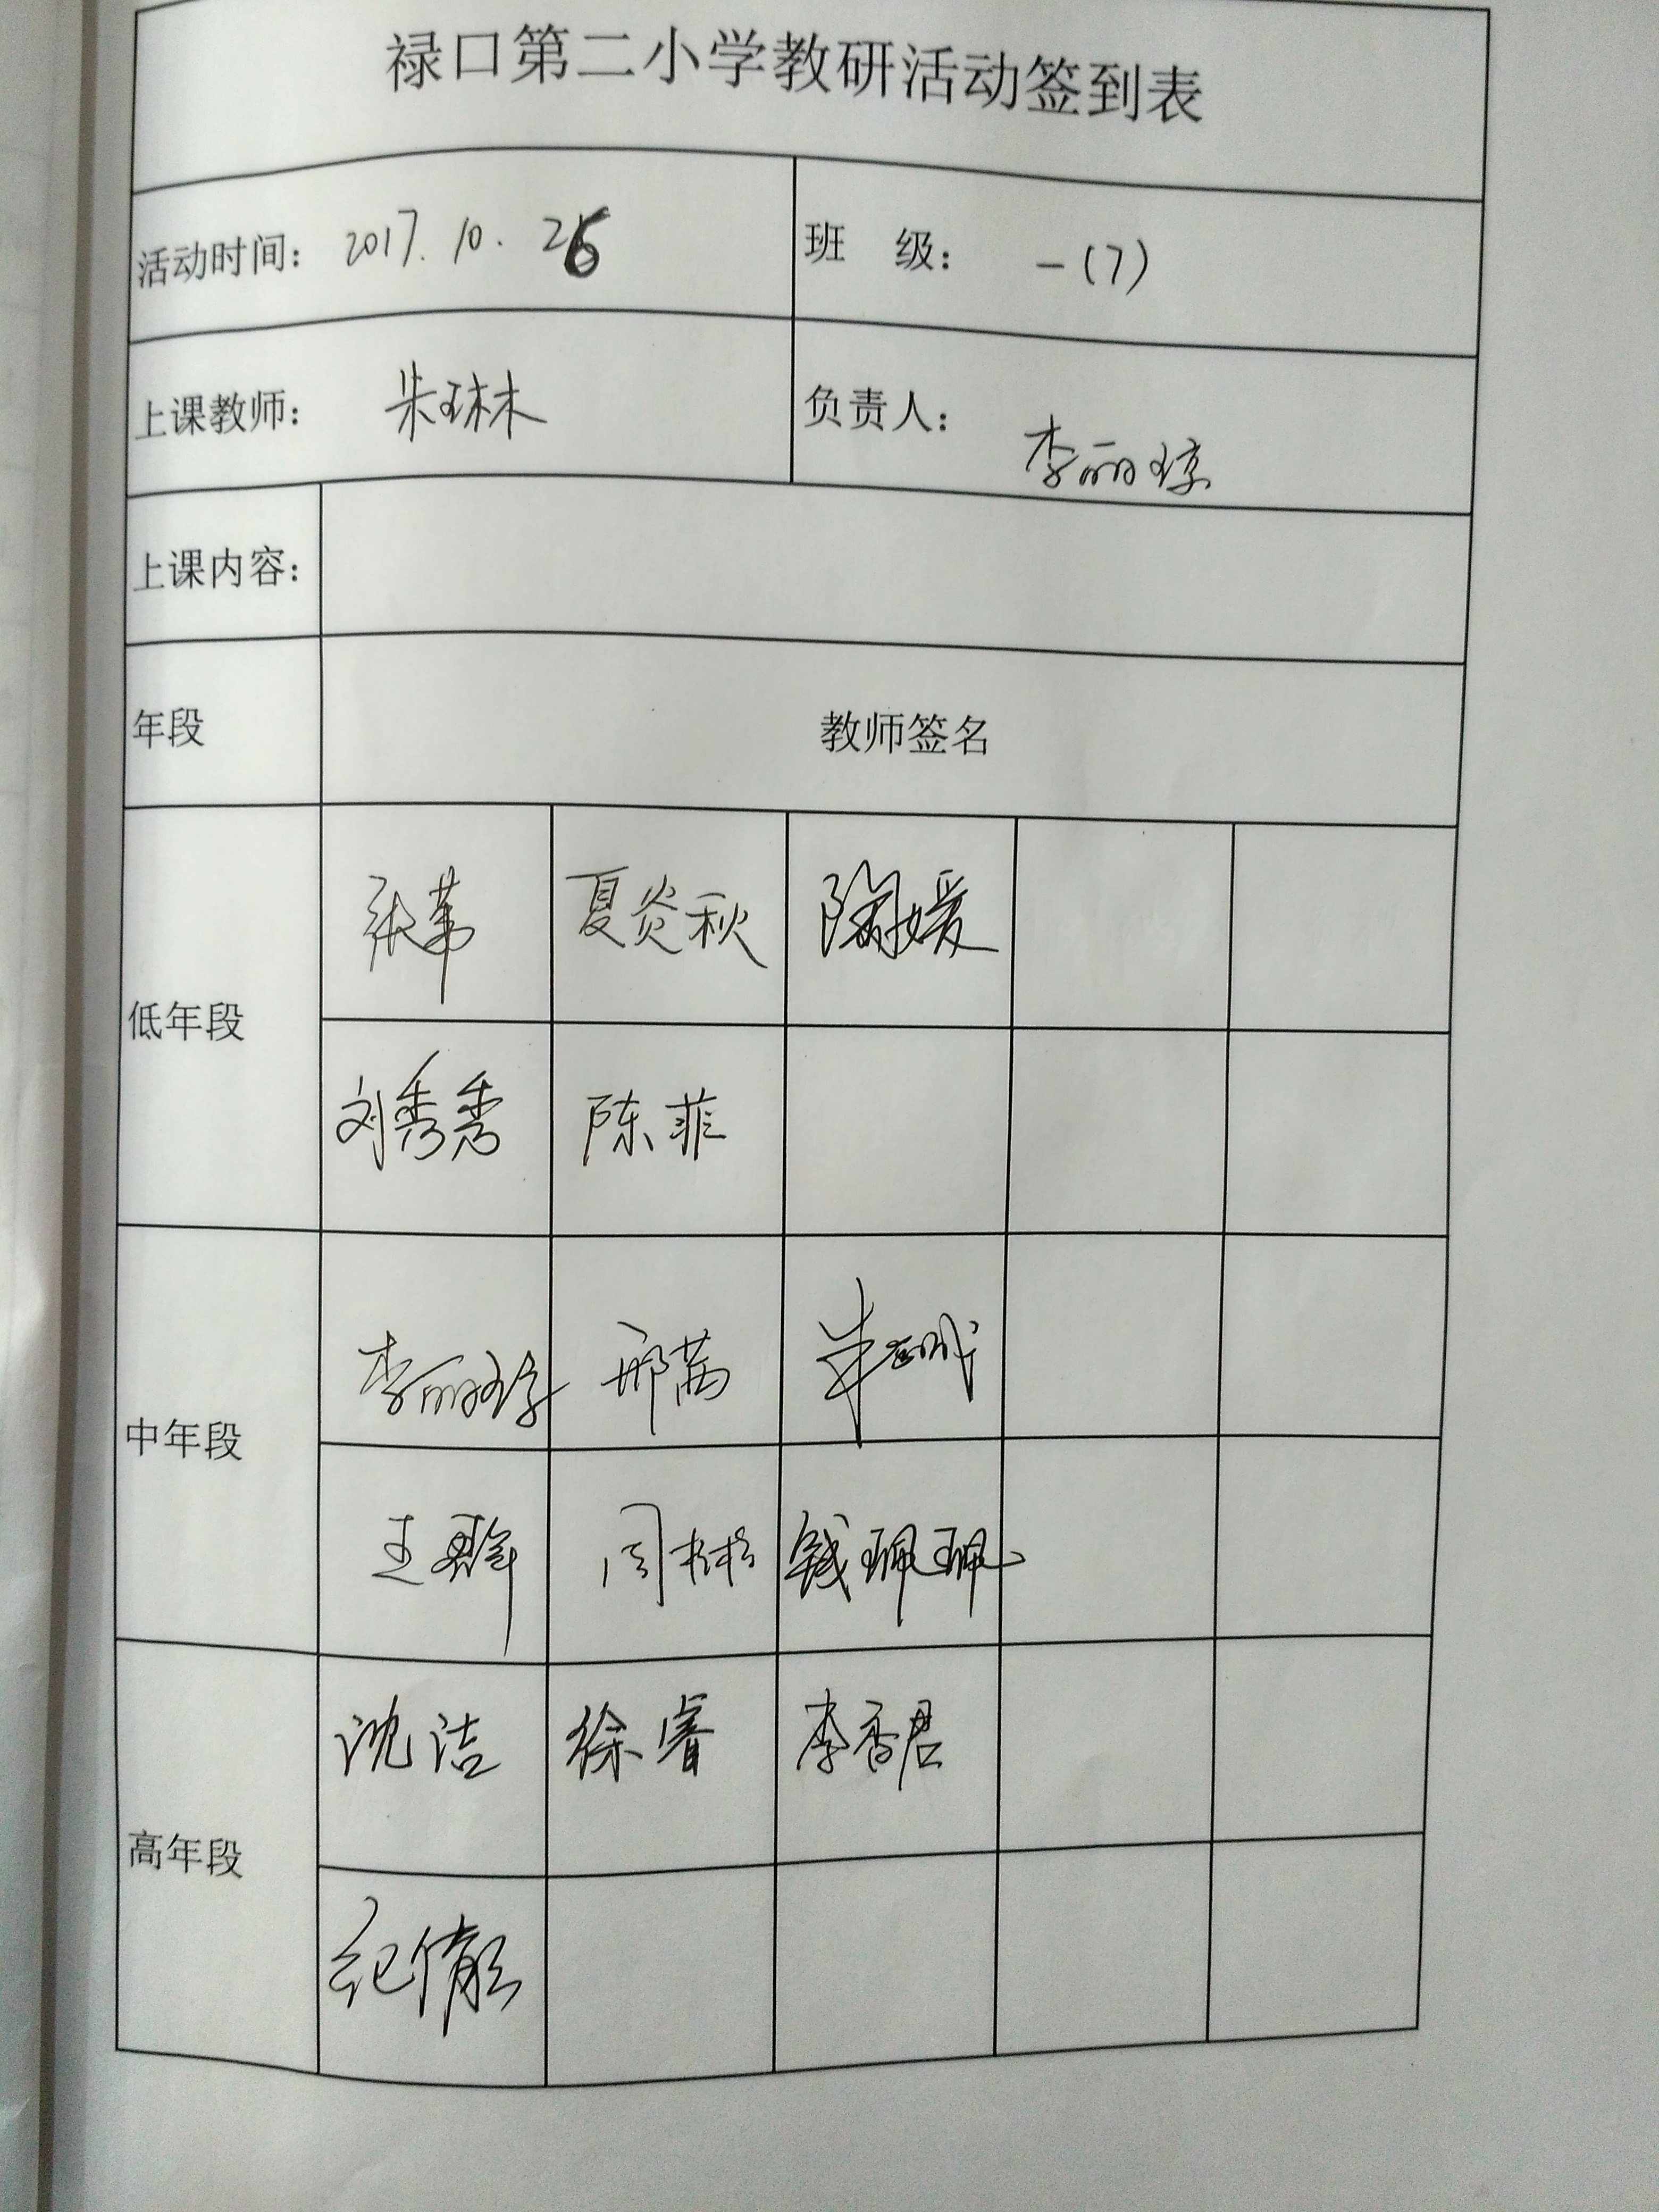 禄口第二小学教研活动签到表
活动时间： 2017.10.26 班 级： 一（7）
上课教师： 朱琳 负责人： 李丽琼
上课内容：
年段 教师签名
张苇 夏炎秋 陶媛
低年段
刘秀秀 陈菲
李丽琼 邢茜
中年段
王 周 钱珮珮
沈洁 徐睿 李香君
高年段
纪倩